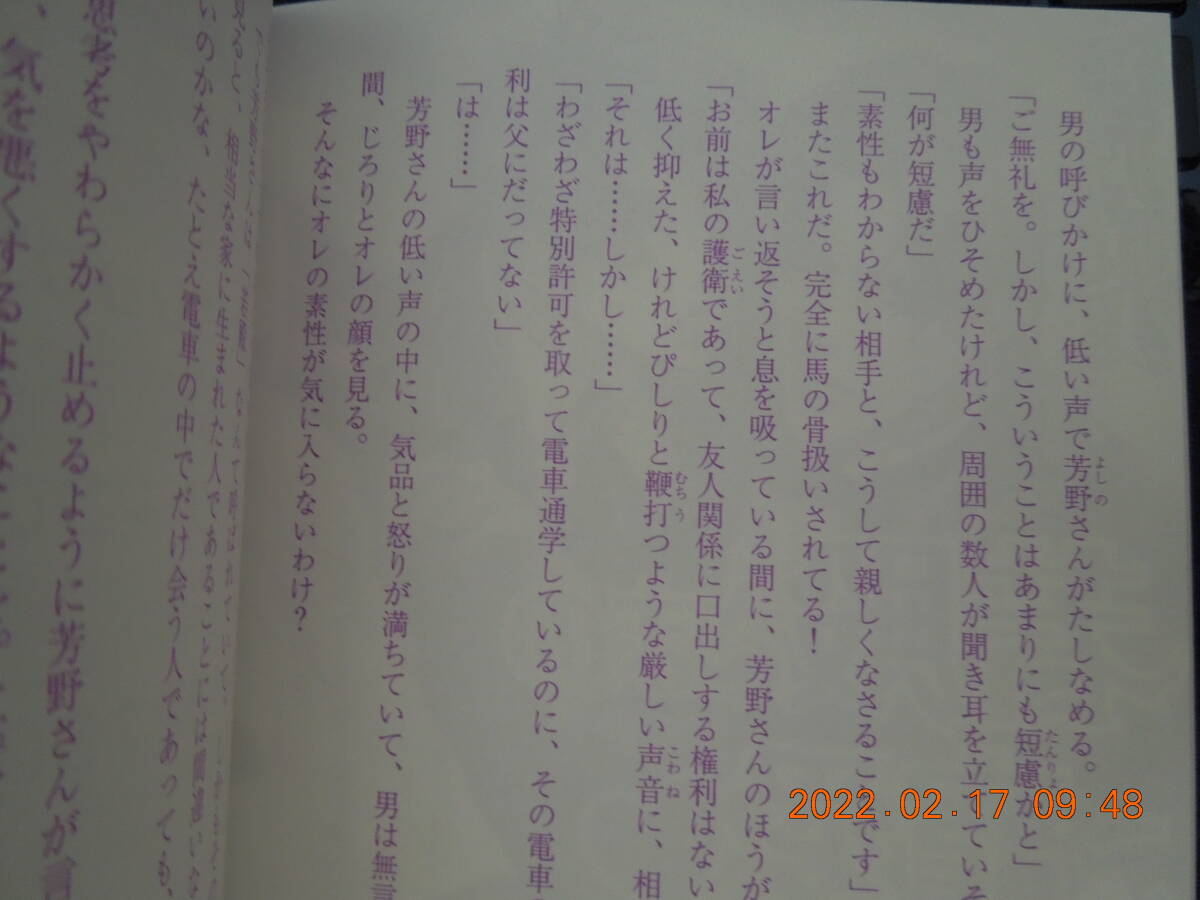 男の呼びかけに、低い声で芳野さんがたしなめる。
「ご無礼を。しかし、こういうことはあまりにも短慮かと」
男も声をひそめたけれど、周囲の数人が聞き耳を立てていそ
「何が短慮だ」
「素性もわからない相手と、こうして親しくなさることです」
またこれだ。完全に馬の骨扱いされてる！
オレが言い返そうと息を吸っている間に、芳野さんのほうが
「お前は私の護衛であって、友人関係に口出しする権利はない
低く抑えた、けれどぴしりと鞭打つような厳しい声音に、相
「それは……しかし……」
「わざわざ特別許可を取って電車通学しているのに、その電車
利は父にだってない」
「は……」
芳野さんの低い声の中に、気品と怒りが満ちていて、男は無言
間、じろりとオレの顔を見る。
そんなにオレの素性が気に入らないわけ？
見ると、相当な家に生まれた人であることには間違いな
いのかな、たとえ電車の中でだけ会う人であっても、
をやわらかく止めるように芳野さんが言
、気を悪くするようなこと
2022.02.17 09:48